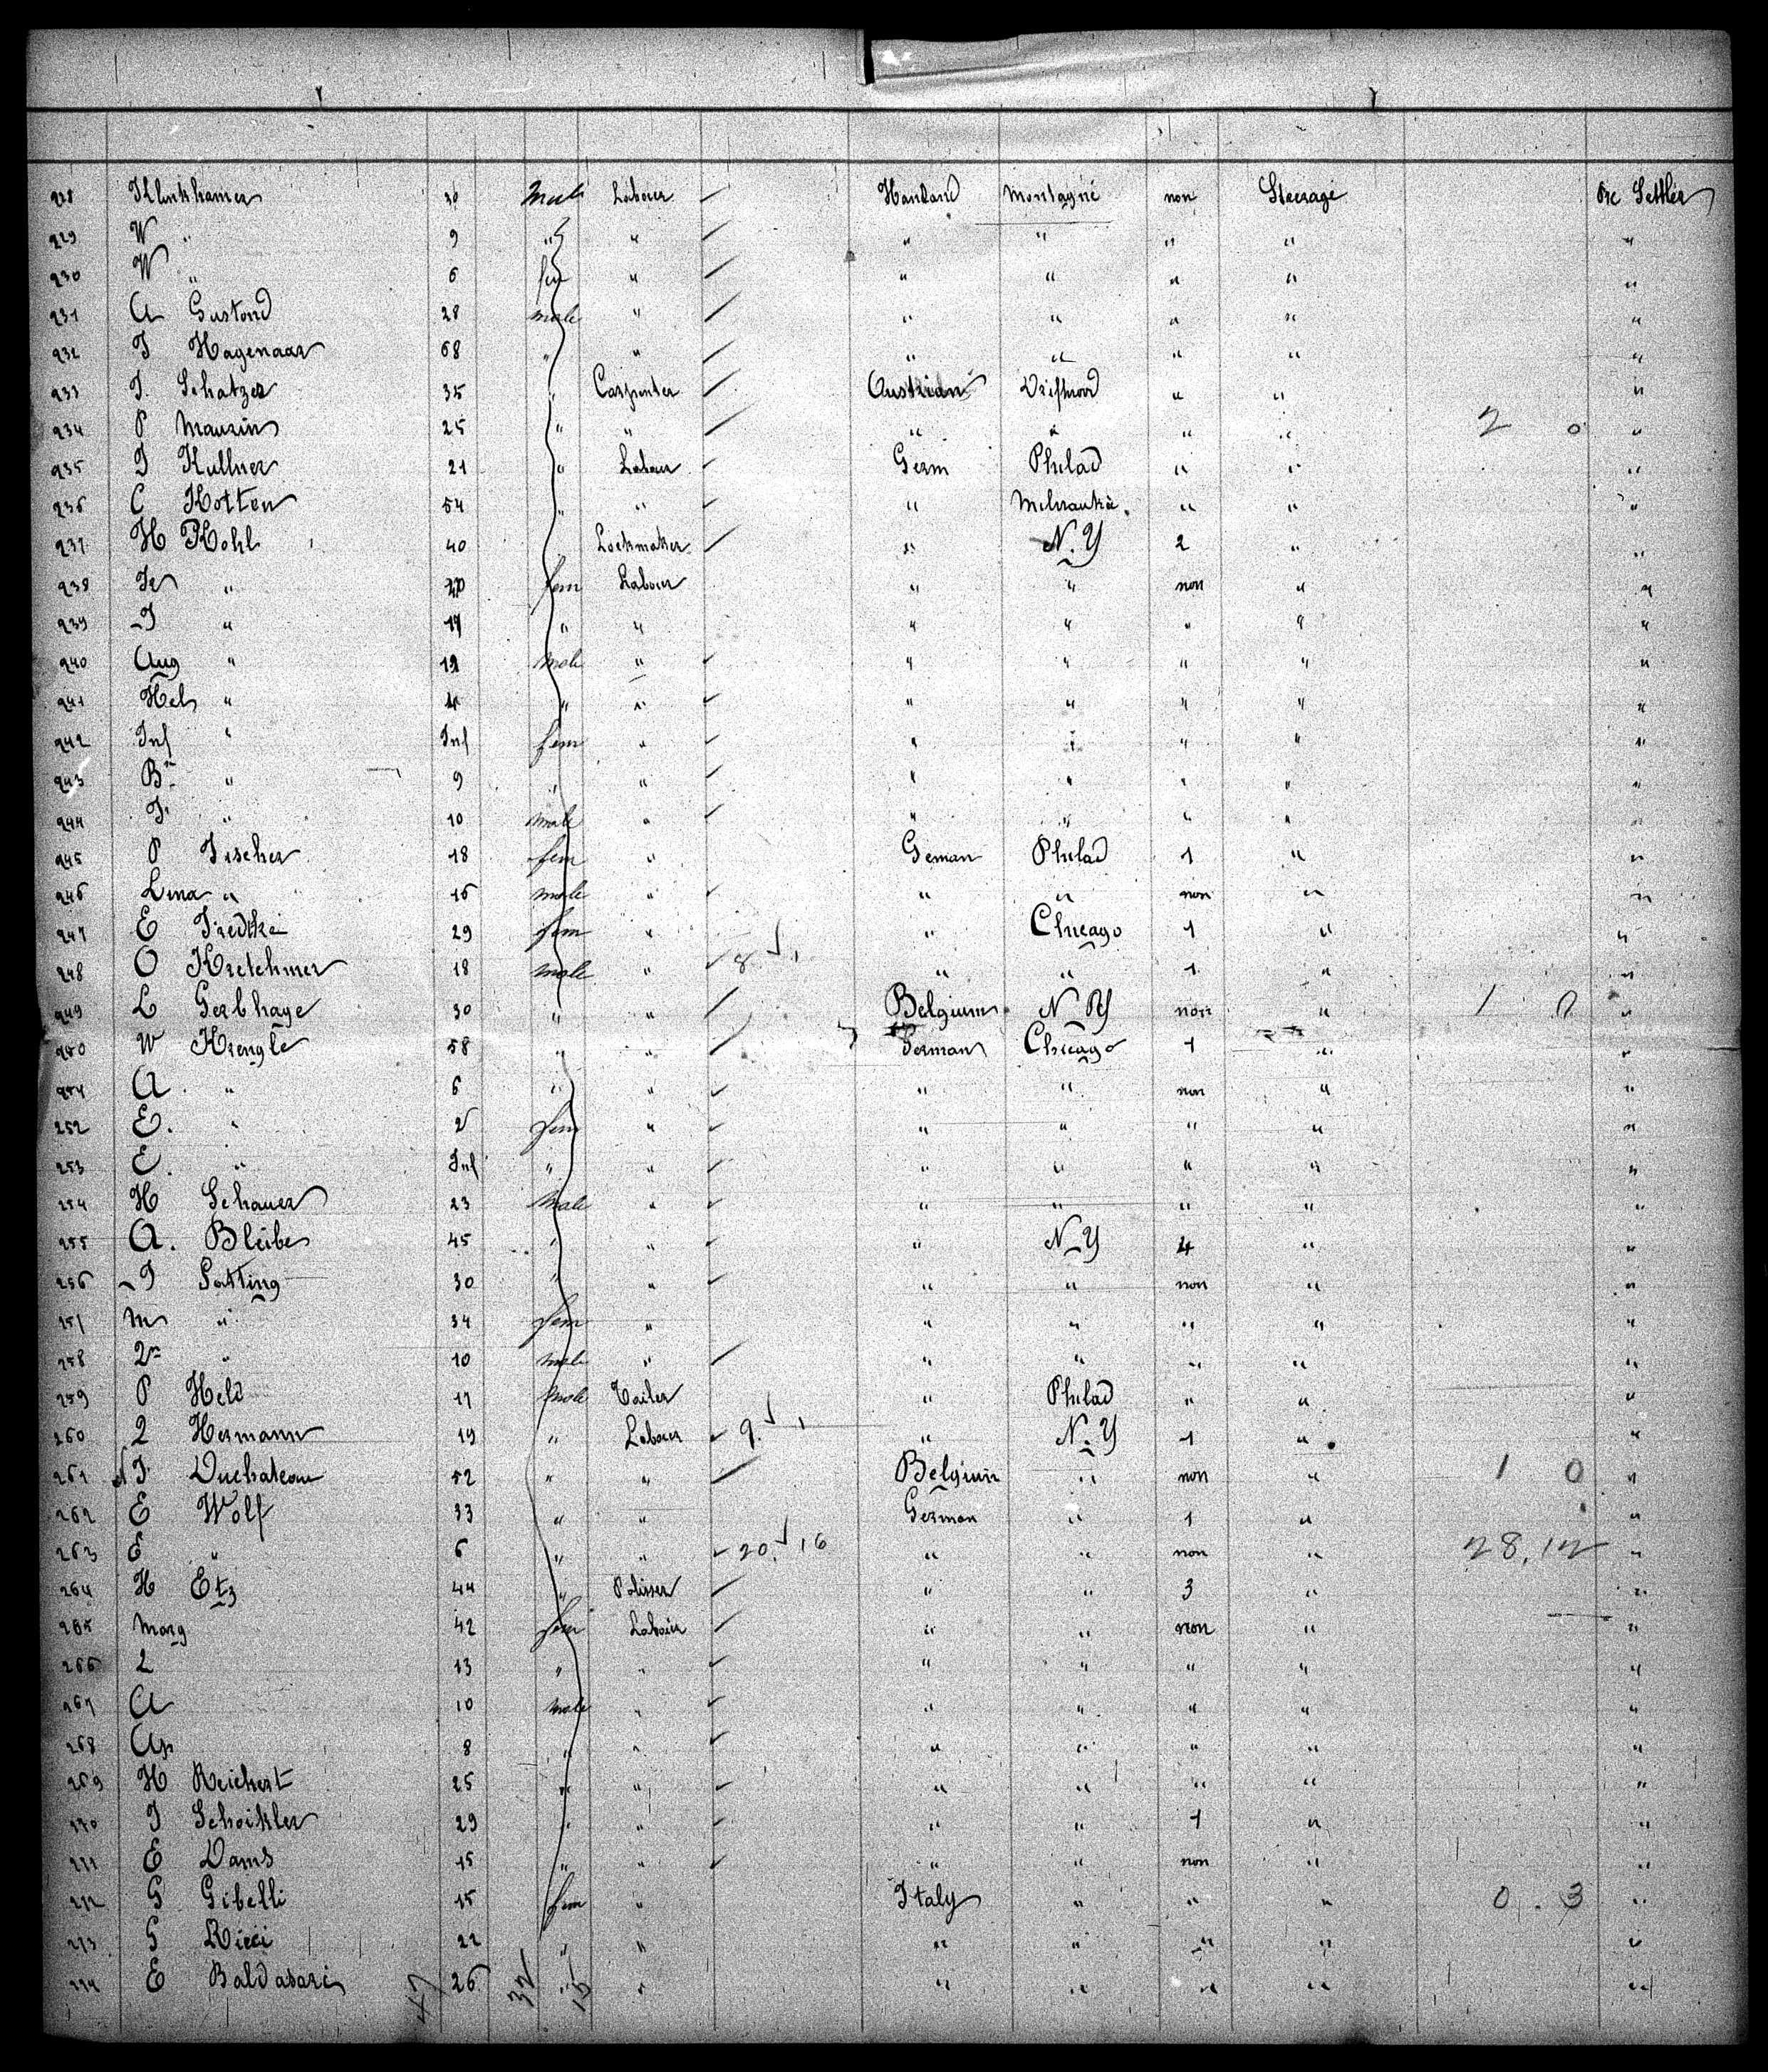 228 Klinkhamer 30 Male Labour Honland Montagne non Steerage Pr Settler
229 W " 9 " " " " " " "
230 W " 6 fem " " " " " "
231 A Gustond 28 male " " " " " "
232 J Hagenaar 68 " " " " " " "
233 J. Schatzer 35 " Carpenter Austrian Driftwood " " "
234 P Maurin 25 " " " " " " 2 0 "
235 J Kullner 21 " Labour Germ Philad " " "
236 C Kotten 54 " " " Milwaukie. " " "
237 H Kohl 40 Lockmaker " N. Y 2 " "
238 " 20 fem Labour " " non " "
239 J " 17 " " " " " " "
240 Aug " 12 Male " " " " " "
241 Hel " 4 " " " " " " "
242 Inf " Inf fem " " " " " "
243 B " 9 " " " " " " "
244 F. " 10 male " " " " " "
245 P Fischer 18 fem " German Philad 1 " "
246 Lina " 16 male " " " non " "
247 E Friedtke 29 fem " " Chicago 1 " "
248 O Kretchmer 18 male " 8 1 " " 1 " "
249 L Gerbhaye 30 " " Belgium N Y non " 1 0 "
250 W Krengle 58 " " German Chicago 1 " "
251 A " 6 " " " " non " "
252 E. " 2 fem " " " " " "
253 E. " Inf " " " " " " "
254 H Schauer 23 Male " " " " " "
255 A. Bleibe 45 " " " N Y 4 " "
256 J Patting 30 " " " " non " "
257 M " 34 fem " " " " " "
258 " 10 male " " " " " "
259 P Held 17 male Tailer " Philad " " "
260 L Hermann 19 " Labour 9. 1 " N. Y 1 " "
261 F. Duchateau 52 " " Belgium " non " 1 0 "
262 E Wolf 33 " " German " 1 " "
263 E " 6 " " 20. 16 " " non " 28. 12 "
264 H Etz 44 " Polisser " " 3 " "
265 Marg 42 fem Labour " " non " "
266 L 13 " " " " " " "
267 A 10 male " " " " " "
268 8 " " " " " " "
269 H Reichert 25 " " " " " " "
270 J Schoikler 29 " " " " 1 " "
271 E Dams 15 " " " " non " "
272 G Gibelli 15 fem " Italy " " " 0. 3 "
273 G Ricci 22 " " " " " " "
274 E Baldasari 26 " " " " " " "
47 32 15